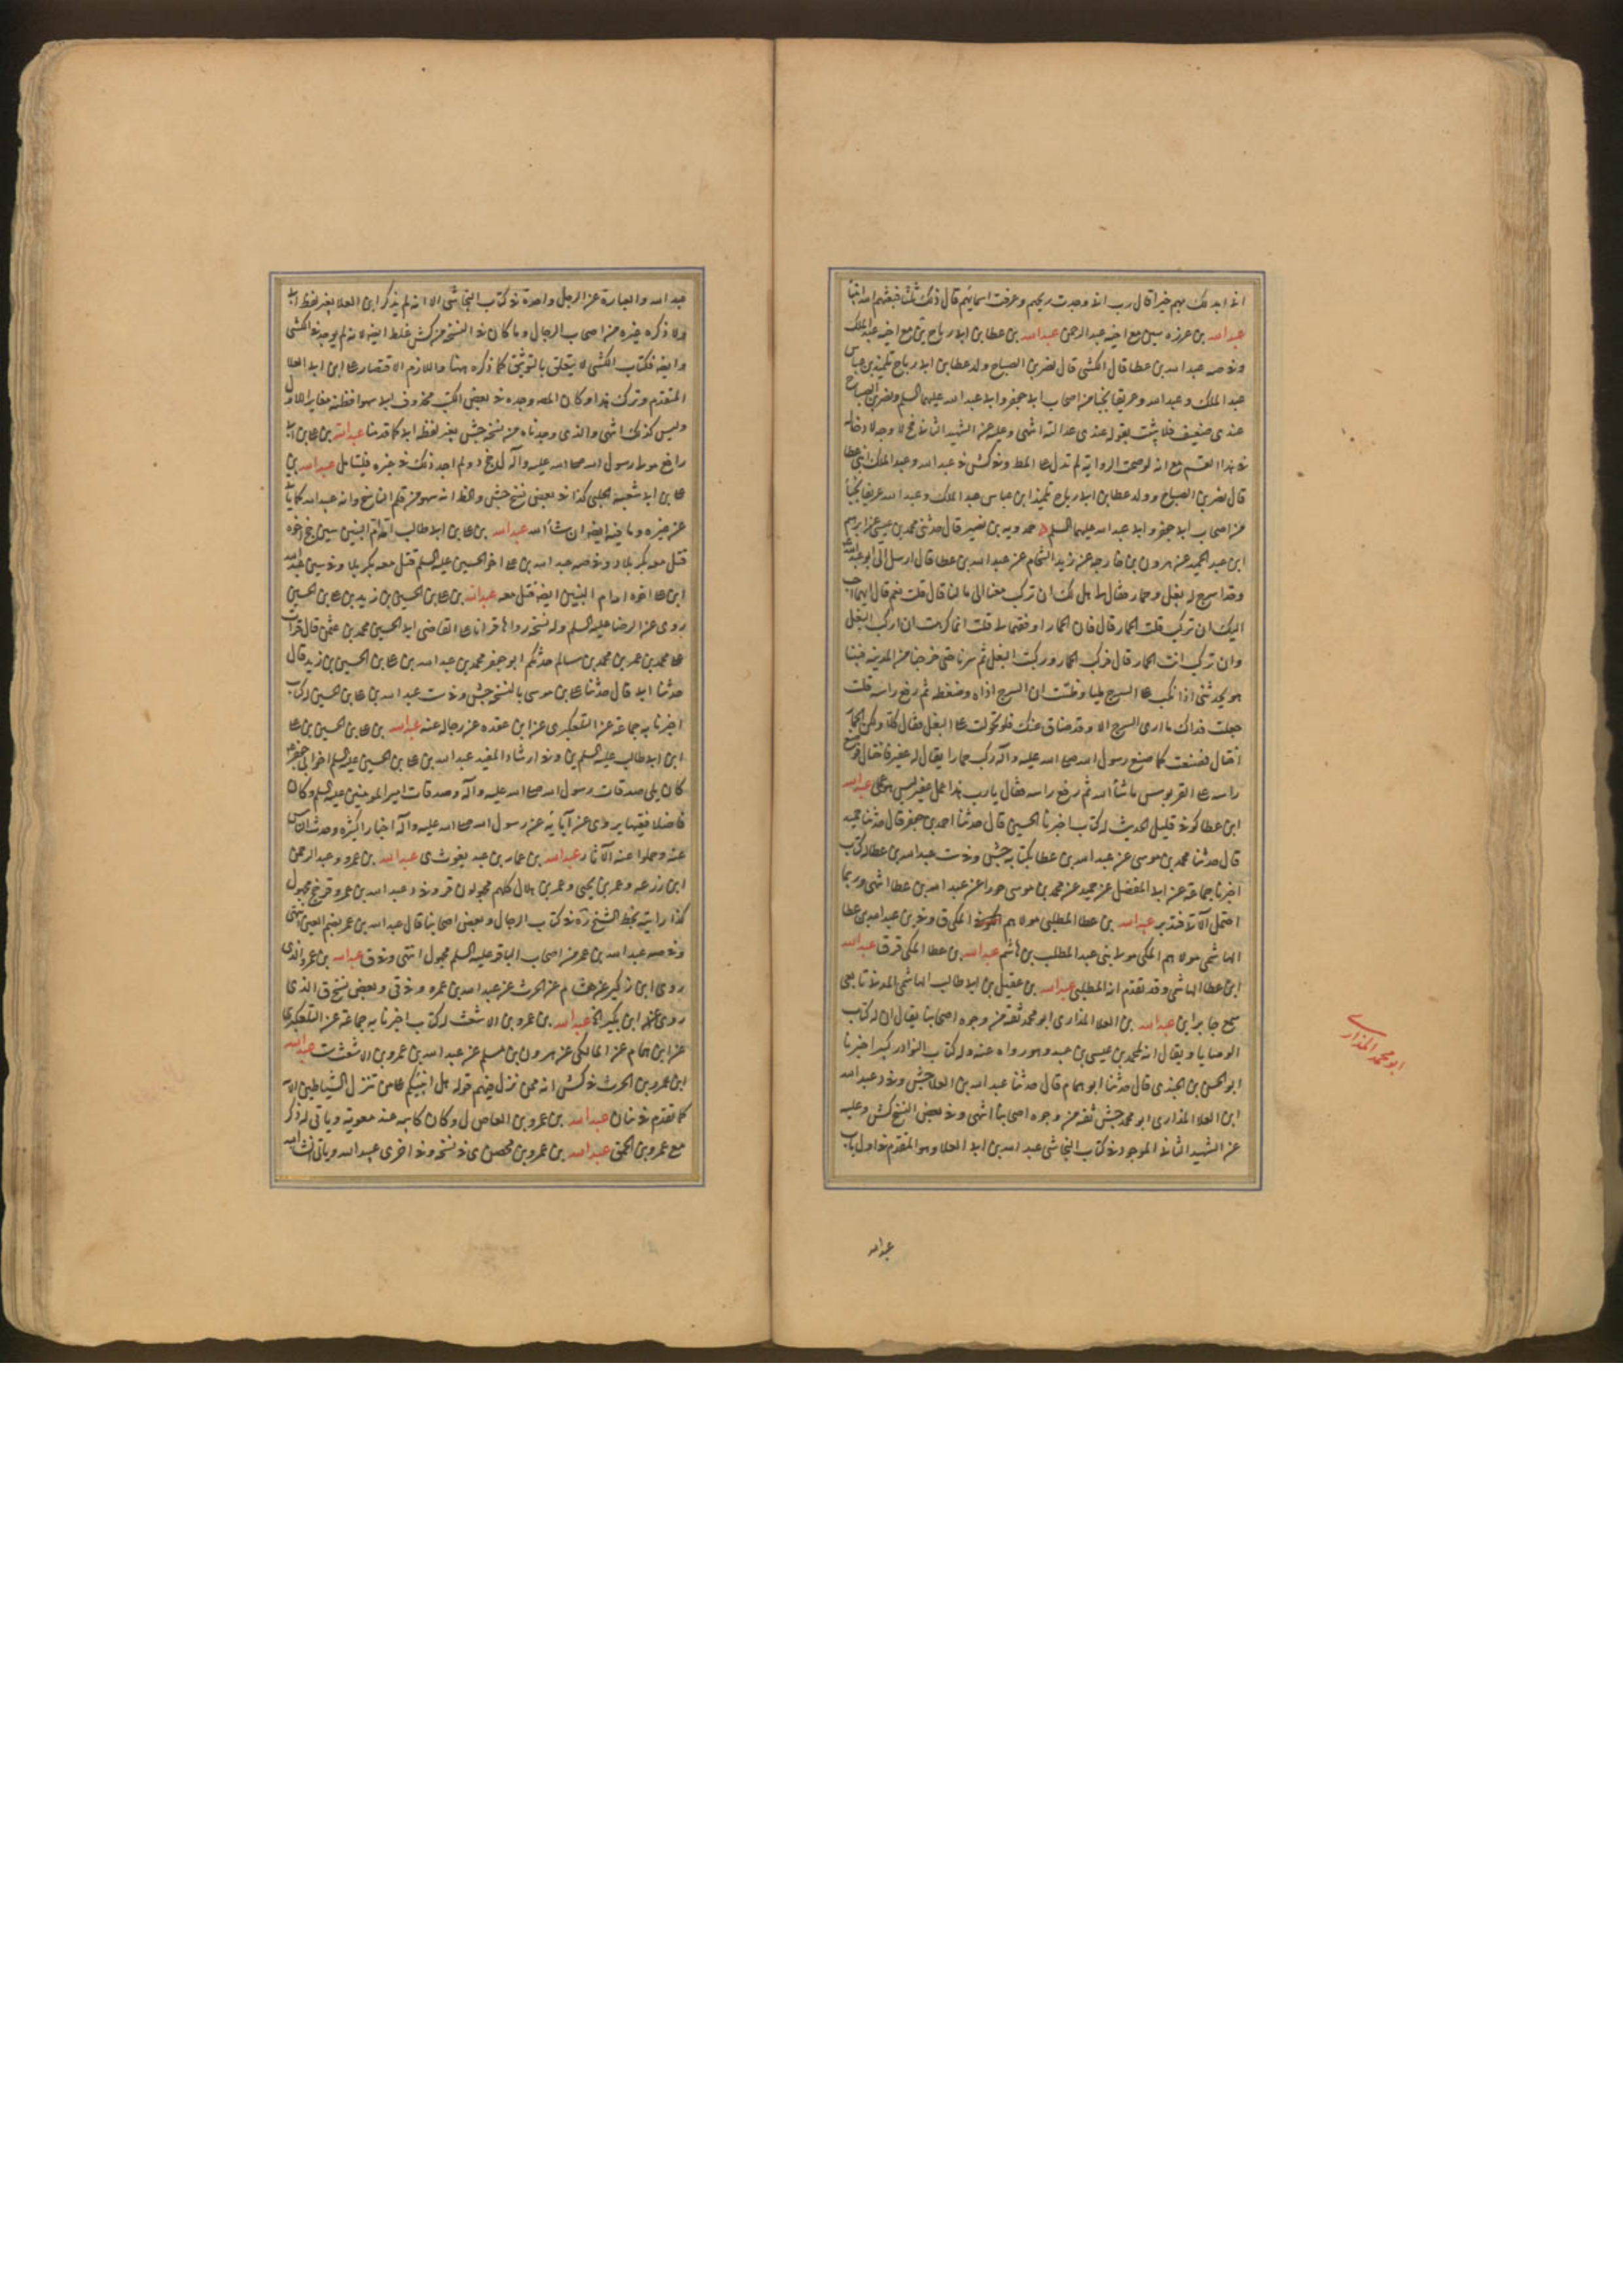 عبد الله بن عزره سين مع اخيه عبد الرحمن عبد الله بن عطا بن ابى رباح ين مع اخيه عبد الملك
وفى صه عبد الله بن عطا قال الكشى قال نصر بن الصباح ولد عطا بن ابى رباح تلميذ بن عباس
عبد الملك وعبد الله وعريفا نجبا من اصحاب ابى جعفر وابى عبد الله عليهما السلم ونصر بن الصباح
عندى ضعيف فلا يثبت بقوله عندى عدالته انتهى وعليه عن الشهيد الثانى
قال نصر بن الصباح وولد عطا بن ابى رباح تلميذ ابن عباس عبد الملك وعبد الله عريفا نجبا
من اصحاب ابى جعفر وابى عبد الله عليهما السلم حمدويه بن نصير قال حدثنى محمد بن عيسى عن ابراهيم
ابن عبد الحميد عن هرون بن خارجه عن زيد الشحام عن عبد الله بن عطا قال ارسل الى ابو عبد الله
وقد اسرج له بغل وحمار فقال لى هل لك ان تركب معنا الى مالنا قال قلت نعم قال ايهما احب
اليك ان تركب قلت الحمار قال فان الحمار اوفقهما لى قلت انما كرهت ان اركب البغل
وان تركب انت الحمار قال فركب الحمار وركبت البغل ثم سرنا حتى خرجنا من المدينه فبينا
هو يحدثنى اذا نكب على السرج مليا وظننت ان السرج اذاه وضغطه ثم رفع راسه قلت
جعلت فداك ما ارى السرج الا وقد ضاق عنك فلو تحولت على البغل فقال كلا ولكن الحمار
اختال فصنعت كما صنع رسول الله صلى الله عليه وآله ركب حمارا يقال له عفير فاختال فوضع
راسه على القربوس ما شاء الله ثم رفع راسه فقال يا رب هذا عمل عفير ليس هو عملى عبد الله
ابن عطا كوفى قليل الحديث له كتاب اخبرنا الحسين قال حدثنا احمد بن جعفر قال حدثنا حميد
قال حدثنا محمد بن موسى عن عبد الله بن عطا بكتابه جش وفى ست عبد الله بن عطا له كتاب
اخبرنا جماعة عن ابى المفضل عن حميد عن محمد بن موسى حورا عن عبد الله بن عطا انتهى وربما
احتمل الآتى فتدبر عبد الله بن عطا المطلبى مولاهم المكى ق وفى ين عبد الله بن عطا
الهاشمى مولاهم المكى مولى بنى عبد المطلب بن هاشم عبد الله بن عطا المكى قر ق عبد الله
ابن عطا الهاشمى وقد تقدم انه المطلبى عبد الله بن عقيل بن ابى طالب الهاشمى المدنى تابعى
سمع جابر ابن عبد الله بن العلا المذارى ابو محمد ثقة من وجوه اصحابنا يقال ان له كتاب
الوصايا ويقال انه لمحمد بن عيسى بن عبيد وهو رواه عنه وله كتاب النوادر كبير اخبرنا
ابو الحسن بن الجندى قال حدثنا ابو همام قال حدثنا عبد الله بن العلا جش وفى د عبد الله
ابن العلا المذارى ابو محمد جش ثقه من وجوه اصحابنا انتهى وفى بعض النسخ كش وعليه
عن الشهيد الثانى الموجود فى كتاب النجاشى عبد الله بن ابى العلا وهو المتقدم فى اول باب
ابو محمد المذارى
عبد الله
عبد الله والعبارة عن الرجل واحدة فى كتاب النجاشى الا انه لم يذكر ابن العلا بغير لفظ ابى
ولا ذكره غيره من اصحاب الرجال وما كان فى النسخ من كش غلط ايضا لانه لم يوجد فى الكشى
وايضا فكتاب الكشى لا يتعلق بالتوثيق كما ذكره هنا واللازم الاقتصار على ابن ابى العلا
المتقدم وترك هذا وكان المصـ وجده فى بعض الكتب محذوف ابى سهوا فظنه مغايرا للاول
وليس كذلك انتهى والذى وجدناه من نسخه جش بغير لفظه ابى كما قدمنا عبد الله بن على بن ابى
رافع مولى رسول الله صلى الله عليه وآله ولم اجد ذلك فى غيره فليتامل عبد الله بن
على بن ابى شعبه الحلبى كذا فى بعض نسخ جش والظ انه سهو من قلم الناسخ وانه عبيد الله كما ياتى
عن غيره وما فيه ايضا ان شاء الله عبد الله بن على بن ابى طالب امه ام البنين سين
قتل معه بكربلا وفى صه عبد الله بن على اخو الحسين عليه السلم قتل معه بكربلا وفى سين عبد الله
ابن على اخوه امه ام البنين ايضا قتل معه عبد الله بن على بن الحسين بن زيد بن على بن الحسين
روى عن الرضا عليه السلم وله نسخه رواها قرانا على القاضى ابى الحسين محمد بن عثمن قال قرات
على محمد بن عمر بن محمد بن سالم حدثكم ابو جعفر محمد بن عبد الله بن على بن الحسين بن زيد قال
حدثنا ابى قال حدثنا على بن موسى بالنسخه جش وفى ست عبد الله بن على بن الحسين له كتاب
اخبرنا به جماعة عن التلعكبرى عن ابن عقده عن رجاله عنه عبد الله بن على بن الحسين بن على
ابن ابى طالب عليه السلم ين وفى ارشاد المفيد عبد الله بن على بن الحسين عليه السلم اخو ابى جعفر
كان يلى صدقات رسول الله صلى الله عليه وآله وصدقات امير المومنين عليه السلم وكان
فاضلا فقيها يروى عن آبائه عن رسول الله صلى الله عليه وآله اخبارا كثيره وحدث الناس
عنه وحملوا عنه الآثار عبد الله بن عمار بن عبد يغوث ى عبد الله بن عمرو وعبد الرحمن
ابن زرعه وعمر بن يحيى وعمر بن هلال كلهم مجهولون قر وفى د عبد الله بن عمرو قر جخ مجهول
كذا رايته بخط الشيخ ره فى كتاب الرجال وبعض اصحابنا قال عبد الله بن عمر بضم العين انتهى
وفى صه عبد الله بن عمر من اصحاب الباقر عليه السلم مجهول انتهى وفى ق عبد الله بن عمرو الذى
روى ابن بكير عن هشام عن الحرث عن عبد الله بن عمره وفى قى وبعض نسخ ق الذى
روى عنه ابن بكير الخ عبد الله بن عمرو بن الاشعث له كتاب اخبرنا به جماعة عن التلعكبرى
عن ابن همام عن المالكى عن هرون بن مسلم عن عبد الله بن عمرو بن الاشعث ست عبد الله
ابن عمرو بن الحرث فى كش انه ممن نزل فيهم قوله هل انبئكم على من تنزل الشياطين الآيه
كما تقدم فى بنان عبد الله بن عمرو بن العاص ل وكان كاتبه عند معويه وياتى له ذكر
مع عمرو بن الحمق عبد الله بن عمرو بن محصن ى فى نسخه وفى اخرى عبيد الله وياتى انشاء الله